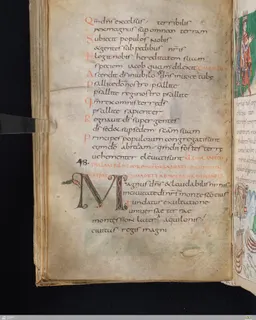 Qm dns excelsus terribilis
rex magnus super omnem terram
Subiecit populos nobis
et gentes sub pedibus nris
Elegit nobis hereditatem suam
speciem iacob quam dilexit
Ascendit ds in iubilo dns in voce tubae
Psallite do nostro psallite
psallite regi nostro psallite
Qm rex omnis terrae ds
psallite sapienter
Regnavit ds super gentes
ds sedet super sedem scam suam
Principes populorum congregati sunt
cum do abraham qm dii fortes terrae
vehementer elevati sunt
48
Magnus dns et laudabilis nimis
in civitate di nri in monte sco eius
Fundatur exultatione
universae terrae
montes sion latera aquilonis
civitas regis magni